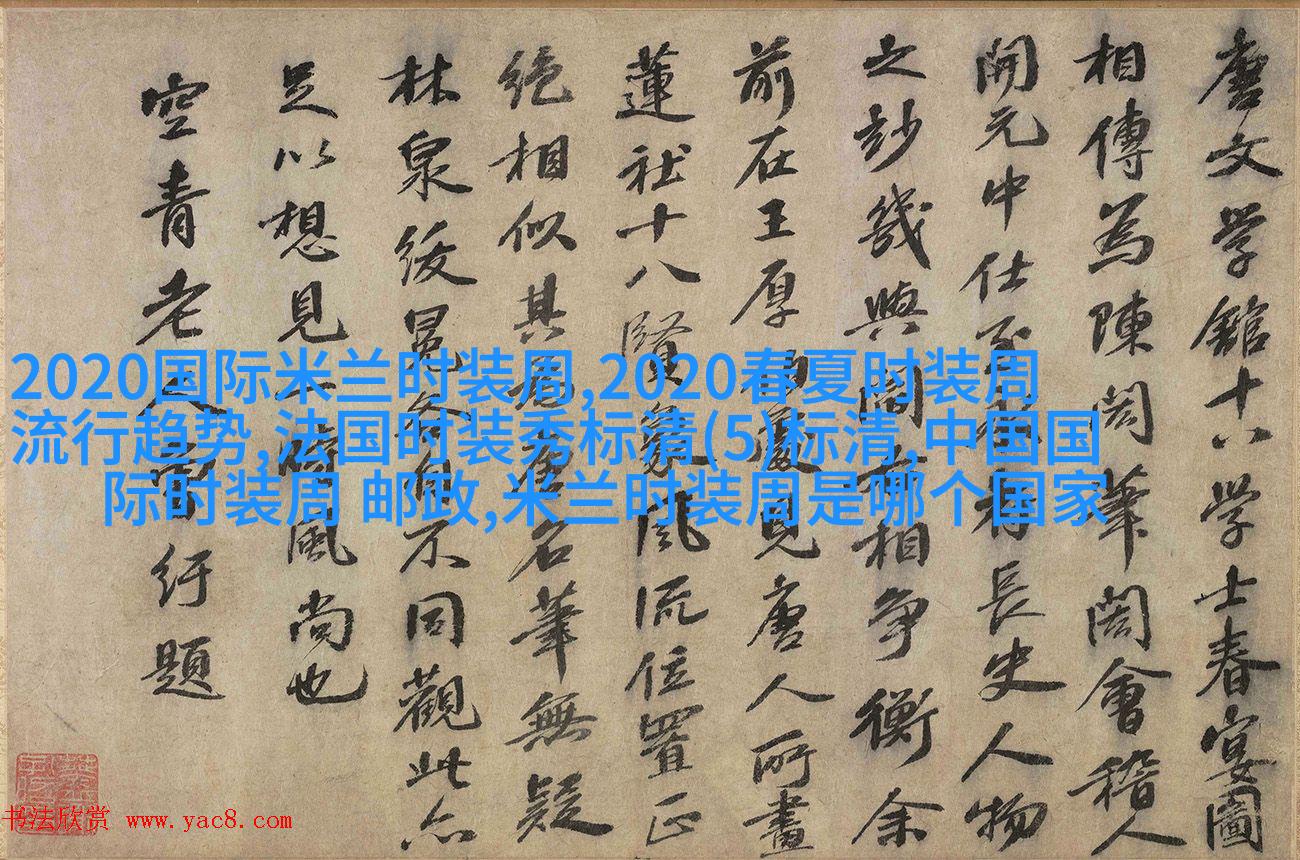 唐文学館十八学士春宴圖
相傳為陳閎筆閎會稽人
開元中仕至長史人物
之妙幾與閻相争衡余
前在王厚處見唐人所畫
蓮社十八賢象風流位置正
絶相似其為唐名筆無疑
林泉綬冕各自不同觀此亦
足以想見一時風尚也
空青老人曾紆題
2020国际米兰时装周,2020春夏时装周
流行趋势,法国时装秀标清(5)标清,中国国
际时装周 邮政,米兰时装周是哪个国家
书法欣赏 www.yac8.com